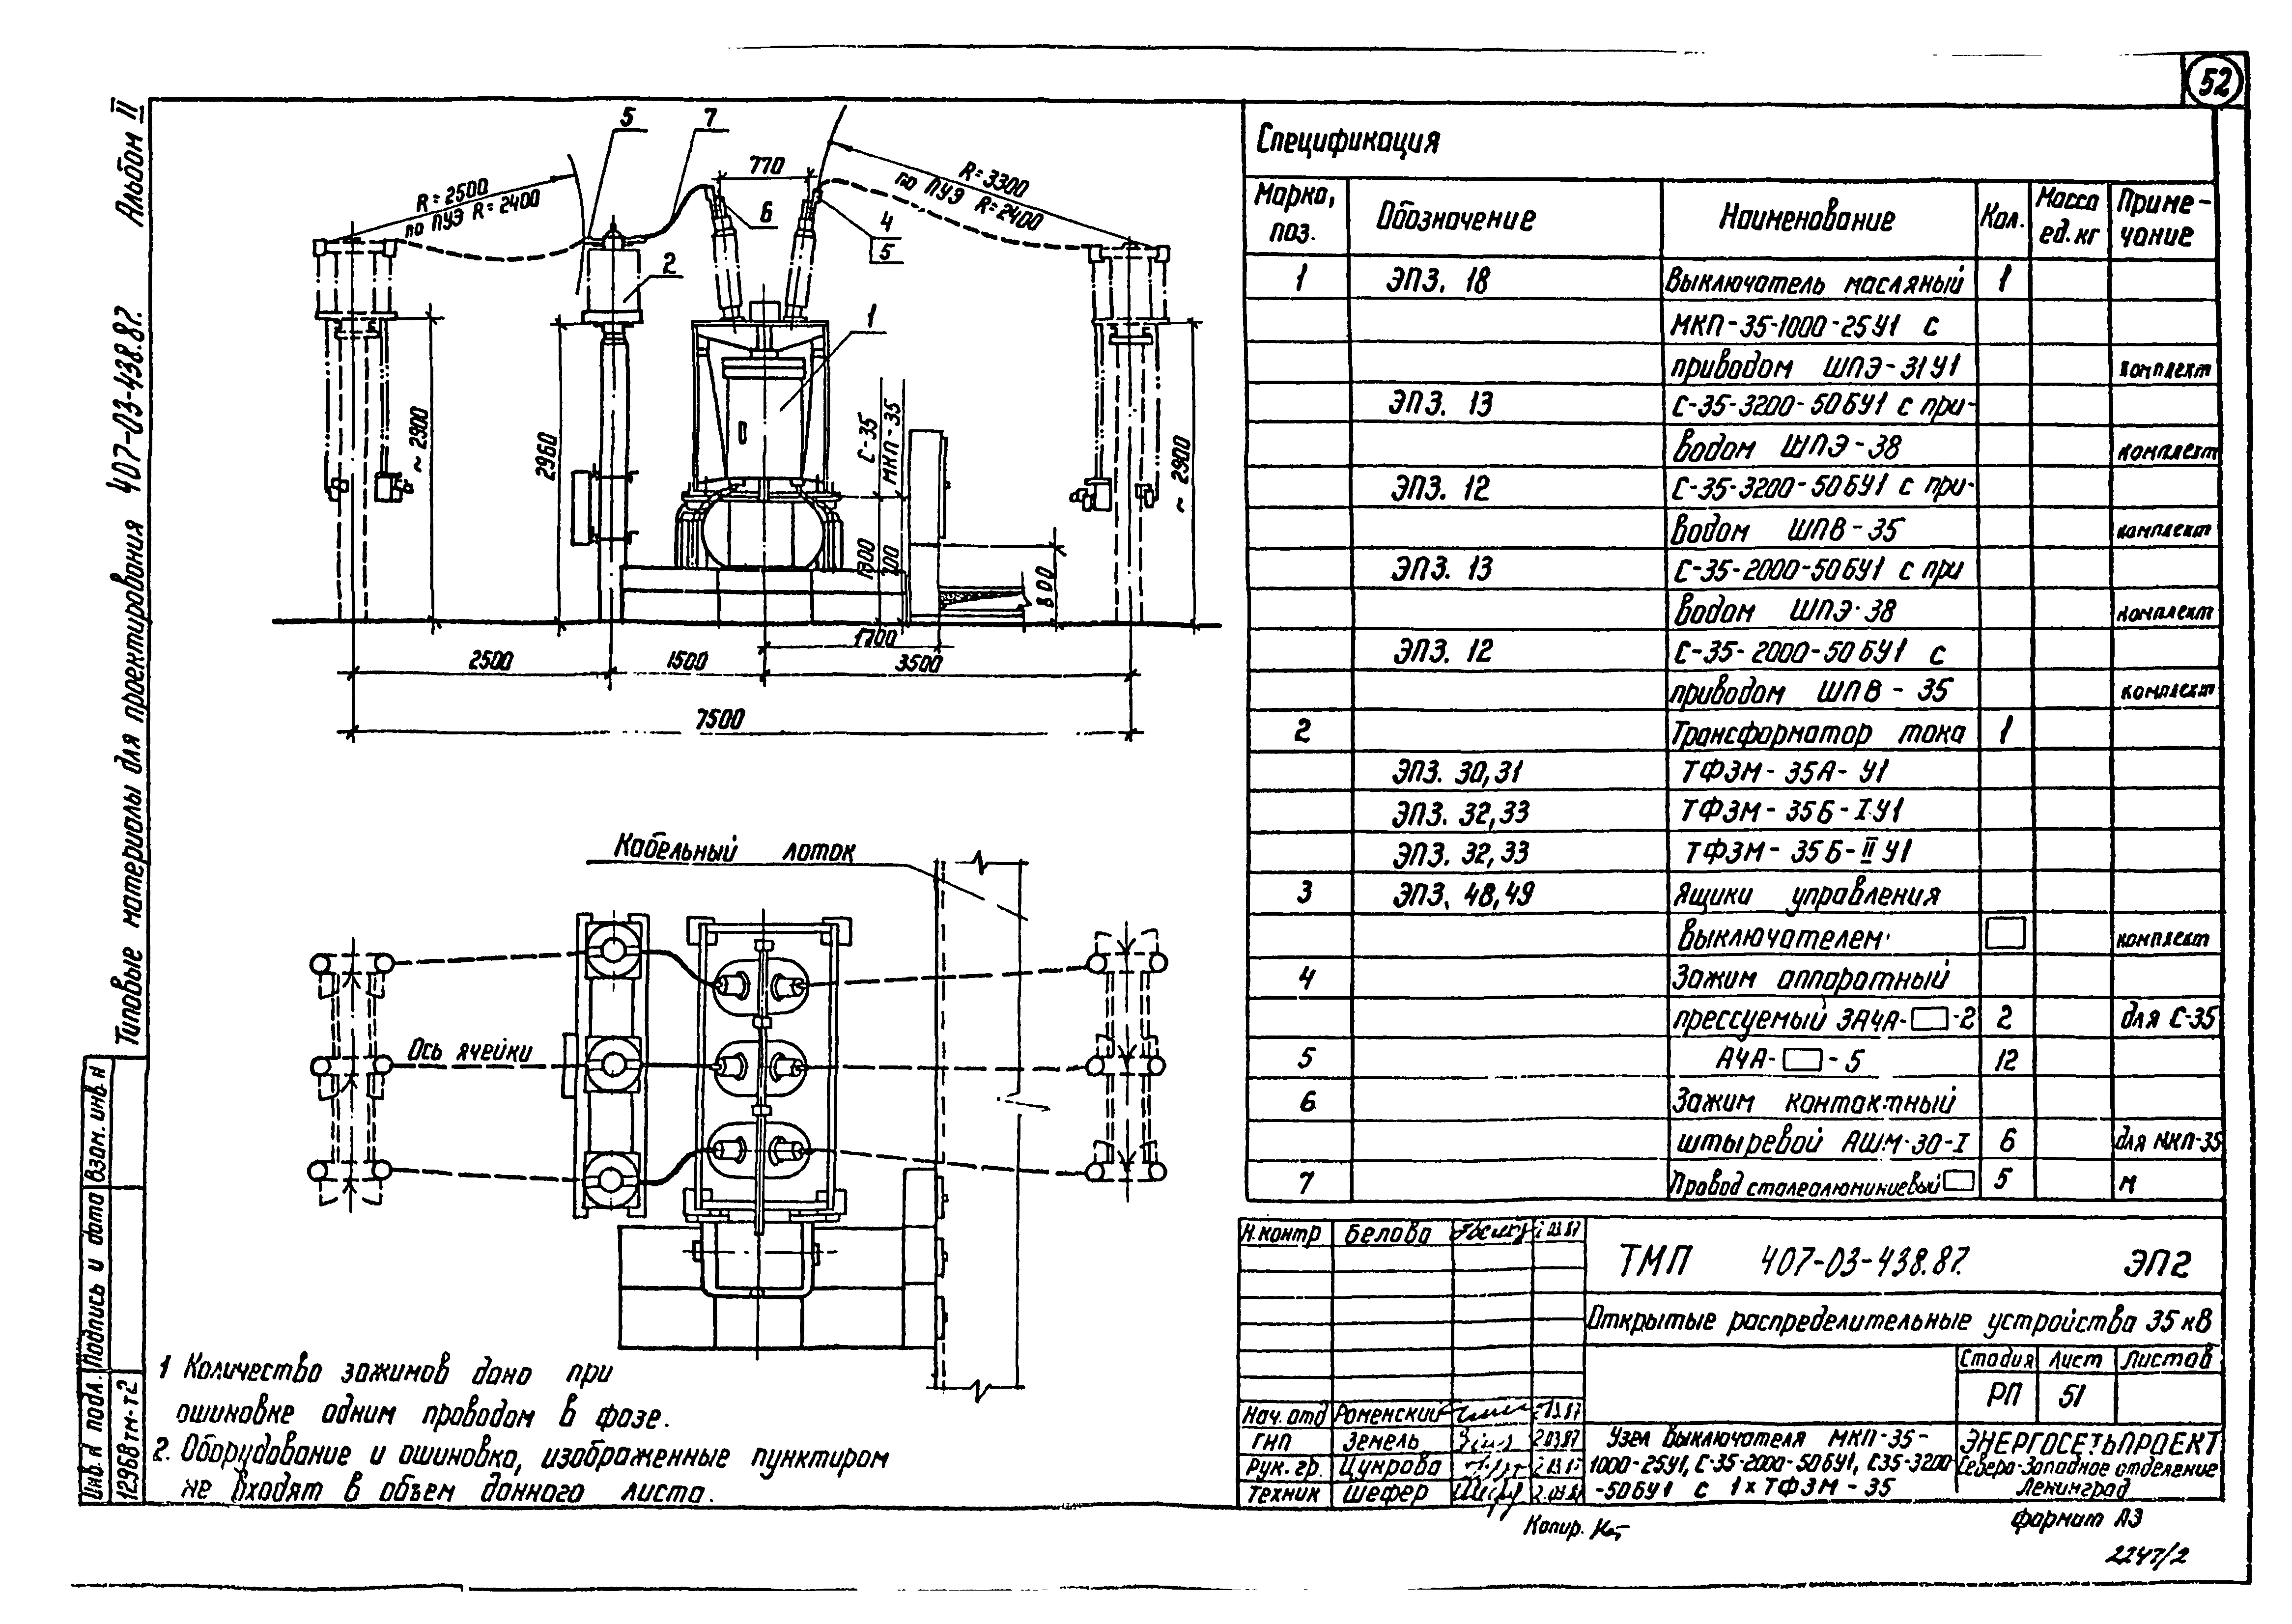 52
Альбом II
Типовые материалы для проектирования 407-03-438.87.
Взам. инв. н
Подпись и дата
Инв. н подл.
12968тм-т2
5
7
770
R=2500
по ПУЭ R=2400
R=3300
по ПУЭ R=2400
6
4
5
2
1
~2900
2960
С-35
МКП-35
~2900
1300
800
1700
2500
1500
3500
7500
Кабельный лоток
Ось ячейки
1 Количество зажимов дано при
ошиновке одним проводом в фазе.
2. Оборудование и ошиновка, изображенные пунктиром
не входят в объем данного листа.
Спецификация
Марка, поз. Обозначение Наименование Кол. Масса ед.кг Приме-чание
1 ЭПЗ. 18 Выключатель масляный 1
МКП-35-1000-25У1 с
приводом ШПЭ-31У1 комплект
ЭПЗ. 13 С-35-3200-50БУ1 с при-
водом ШПЭ-38 комплект
ЭПЗ. 12 С-35-3200-50БУ1 с при-
водом ШПВ-35 комплект
ЭПЗ. 13 С-35-2000-50БУ1 с при
водом ШПЭ-38 комплект
ЭПЗ. 12 С-35-2000-50БУ1 с
приводом ШПВ-35 комплект
2 Трансформатор тока 1
ЭПЗ. 30,31 ТФЗМ-35А-У1
ЭПЗ. 32,33 ТФЗМ-35Б-I У1
ЭПЗ. 32,33 ТФЗМ-35Б-II У1
3 ЭПЗ. 48,49 Ящики управления
выключателем комплект
4 Зажим аппаратный
прессуемый ЗА4А-□-2 2 для С-35
5 А4А-□-5 12
6 Зажим контактный
штыревой АШМ-30-I 6 для МКП-35
7 Провод сталеалюминиевый □ 5 м
Н.контр Белова 03.87
ТМП 407-03-438.87. ЭП2
Открытые распределительные устройства 35кВ
Стадия Лист Листов
РП 51
Нач.отд Роменский
ГНП Земель 2.03.87
Рук.гр. Цукрова
Техник Шефер
Узел выключателя МКП-35-
1000-25У1, С-35-2000-50БУ1, С35-3200
-50БУ1 с 1×ТФЗМ-35
ЭНЕРГОСЕТЬПРОЕКТ
Северо-Западное отделение
Ленинград
Копир.
формат А3
2247/2